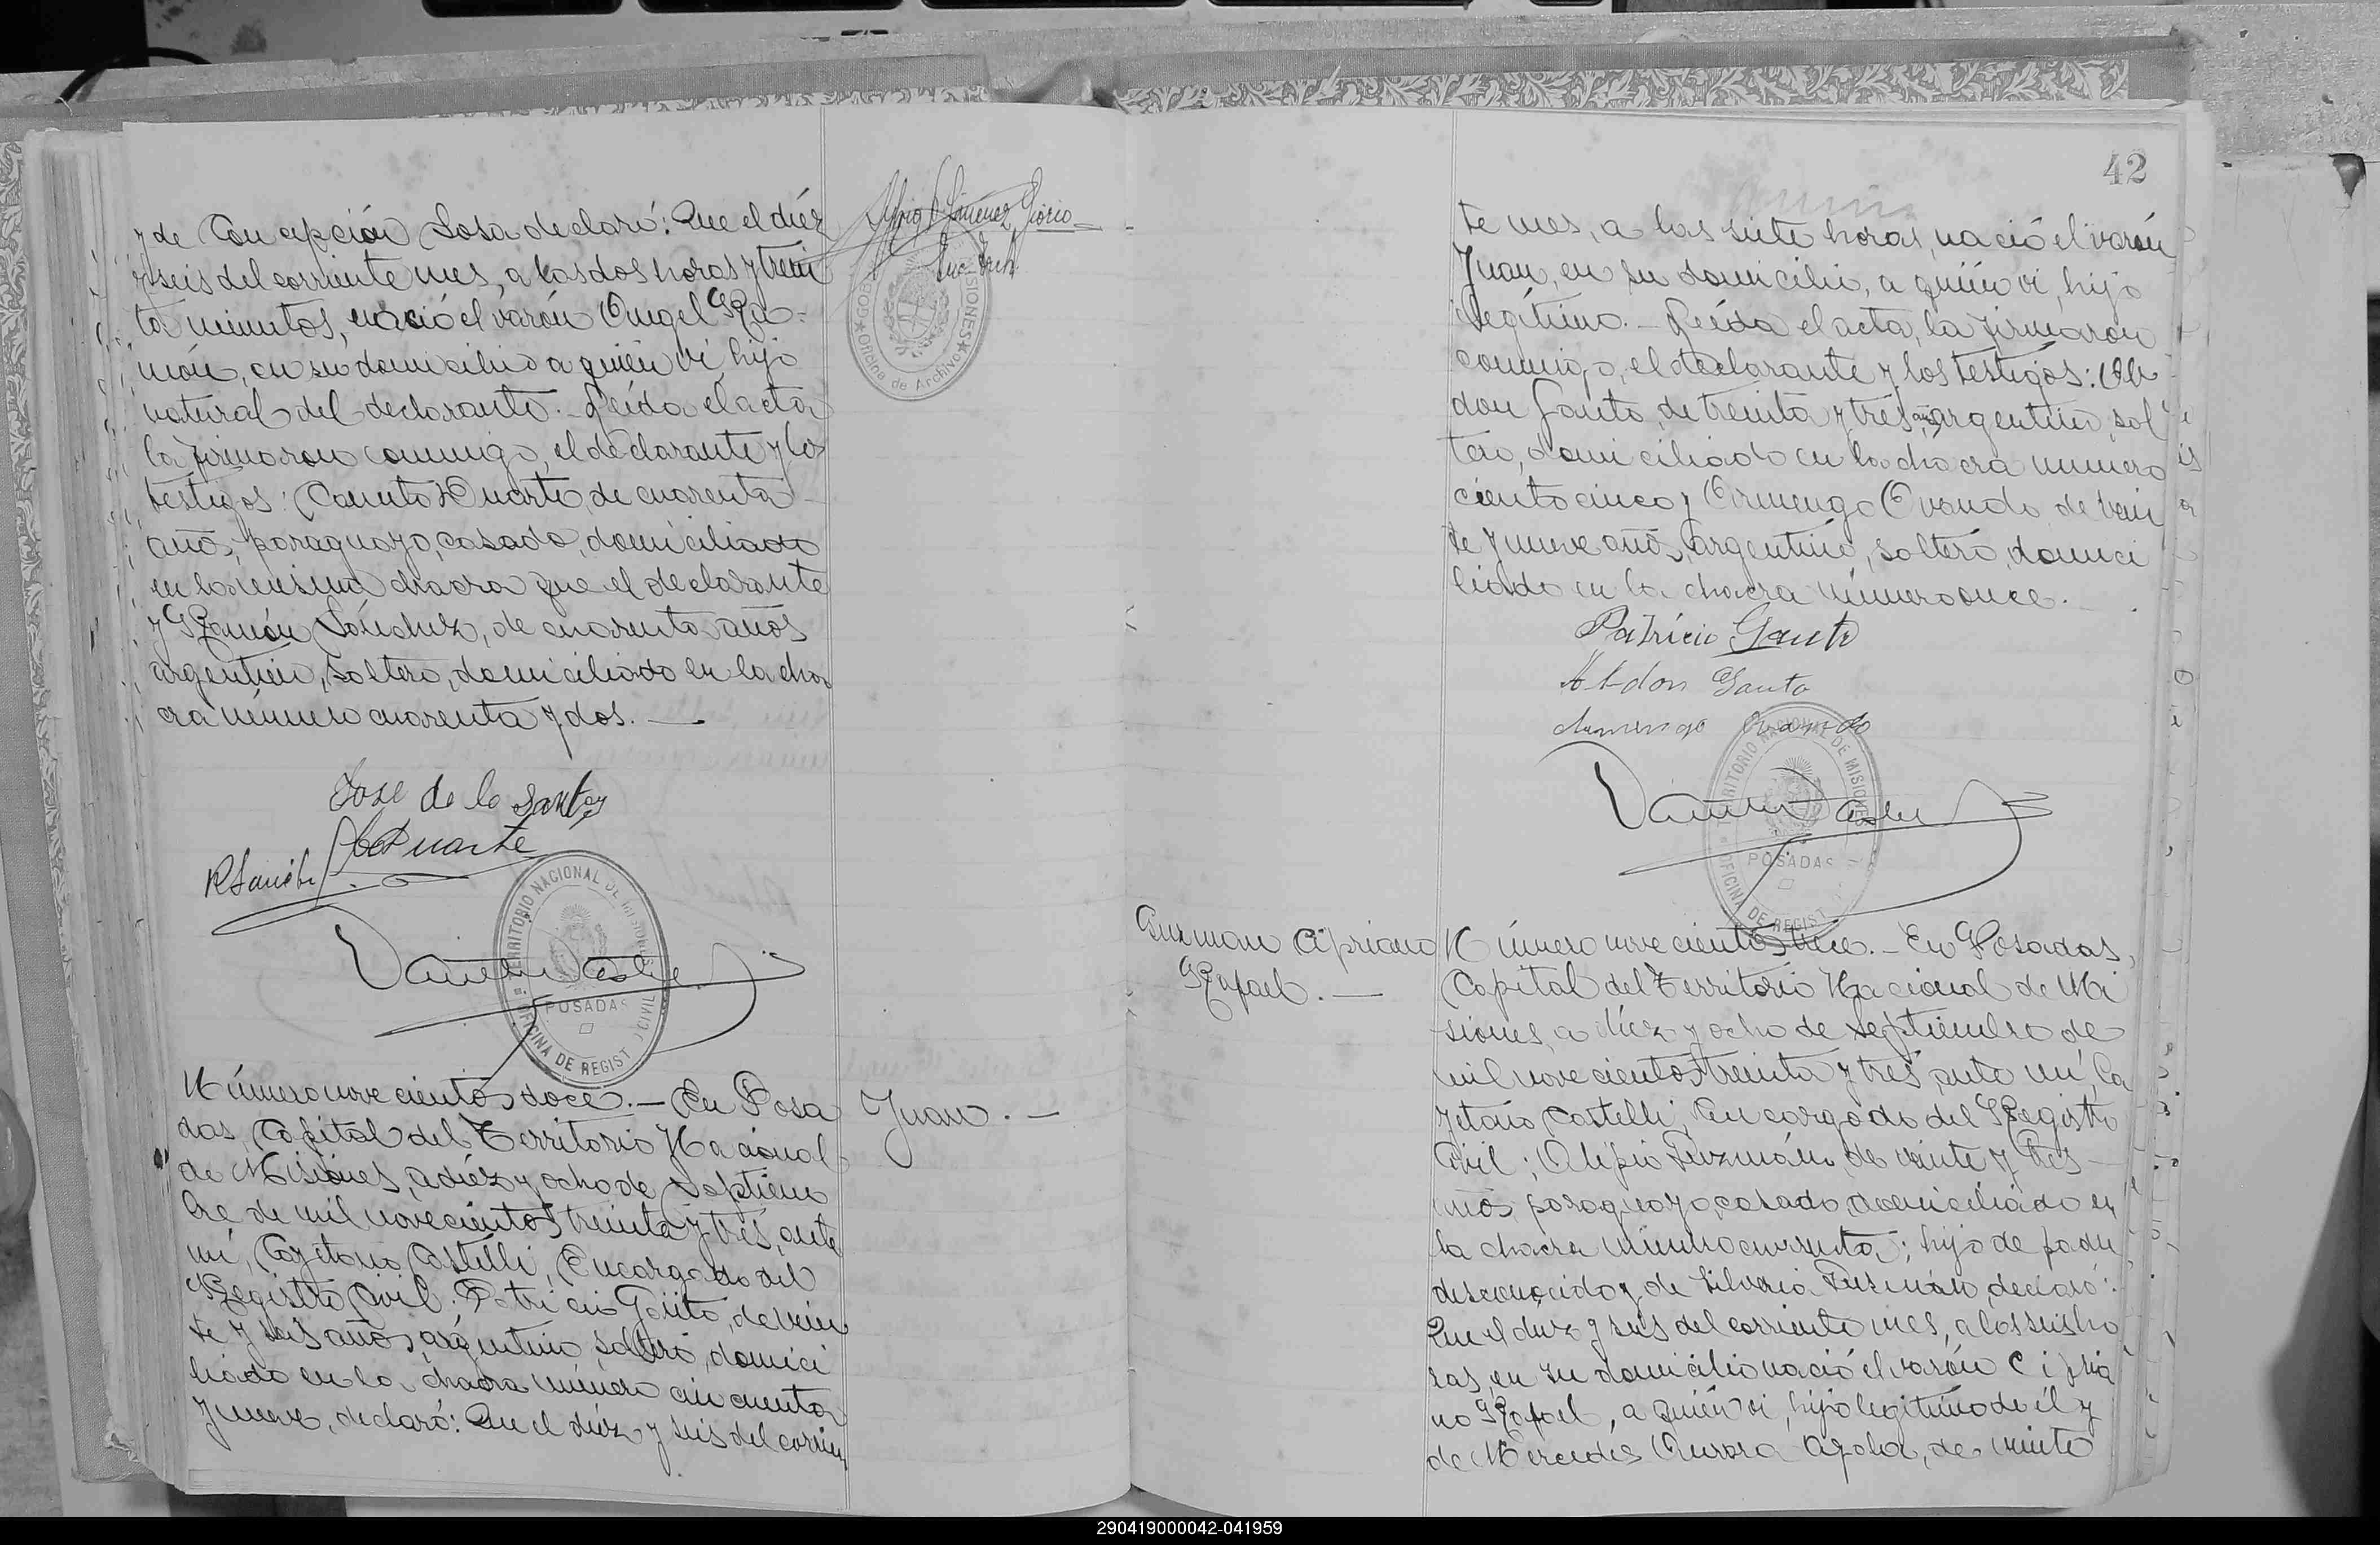 y de Concepción Sosa declaró: Que el diez
y seis del corriente mes, a las dos horas y trein
ta minutos, nació el varón Angel Ra-
món, en su domicilio a quién vi hijo
natural del declarante. Leída el acta
la firmaron conmigo, el declarante y los
testigos: Canuto Duarte, de cuarenta
años, paraguayo, casado, domiciliado
en la misma chacra que el declarante
y Ramón Sánchez, de cuarenta años
argentino, soltero, domiciliado en la cha
cra número cuarenta y dos. —
Jose de lo Santos
Duarte
R Sanchez
TERRITORIO NACIONAL DE MISIONES
POSADAS
OFICINA DE REGIST CIVIL
Número novecientos doce. — En Posa
das, Capital del Territorio Nacional
de Misiones, a diez y ocho de Septiem
bre de mil novecientos treinta y trés, ante
mí, Cayetano Castelli, Encargado del
Registro Civil; Patricio Gauto, de vein
te y seis años, argentino, soltero, domici
liado en la chacra número cincuenta
y nueve, declaró: Que el diéz y seis del corrien
Jimenez Giorio
MISIONES
Oficina de Archivo
Juan. —
42
te mes, a las siete horas, nació el varón
Juan, en su domicilio, a quién vi, hijo
ilegítimo. — Leída el acta, la firmaron
conmigo, el declarante y los testigos: Ab
don Gauto, de treinta y trés años, argentino, sol
tero, domiciliado en la chacra número
ciento cinco y Armengo Ovando, de vein
te y nueve años, argentino, soltero, domici
liado en la chacra número once.
Patricio Gauto
Abdon Gauto
Ovando
TERRITORIO NACIONAL DE MISIONES
POSADAS
OFICINA DE REGIST
Guzman Cipriano
Rafael. —
Número novecientos trece. — En Posadas,
Capital del Territorio Nacional de Mi
siones, a diez y ocho de Septiembre de
mil novecientos treinta y trés, ante mí, Ca
yetano Castelli, Encargado del Registro
Civil; Alipio Guzmán, de veinte y tres
años, paraguayo, casado, domiciliado en
la chacra número cuarenta; hijo de padre
desconocido y de Silveria Guzmán, declaró:
Que el diez y seis del corriente mes, a las seis ho
ras, en su domicilio nació el varón Cipria
no Rafael, a quién vi, hijo legitimo de él y
de Mercedes Aurora Ayala, de veinte
290419000042-041959